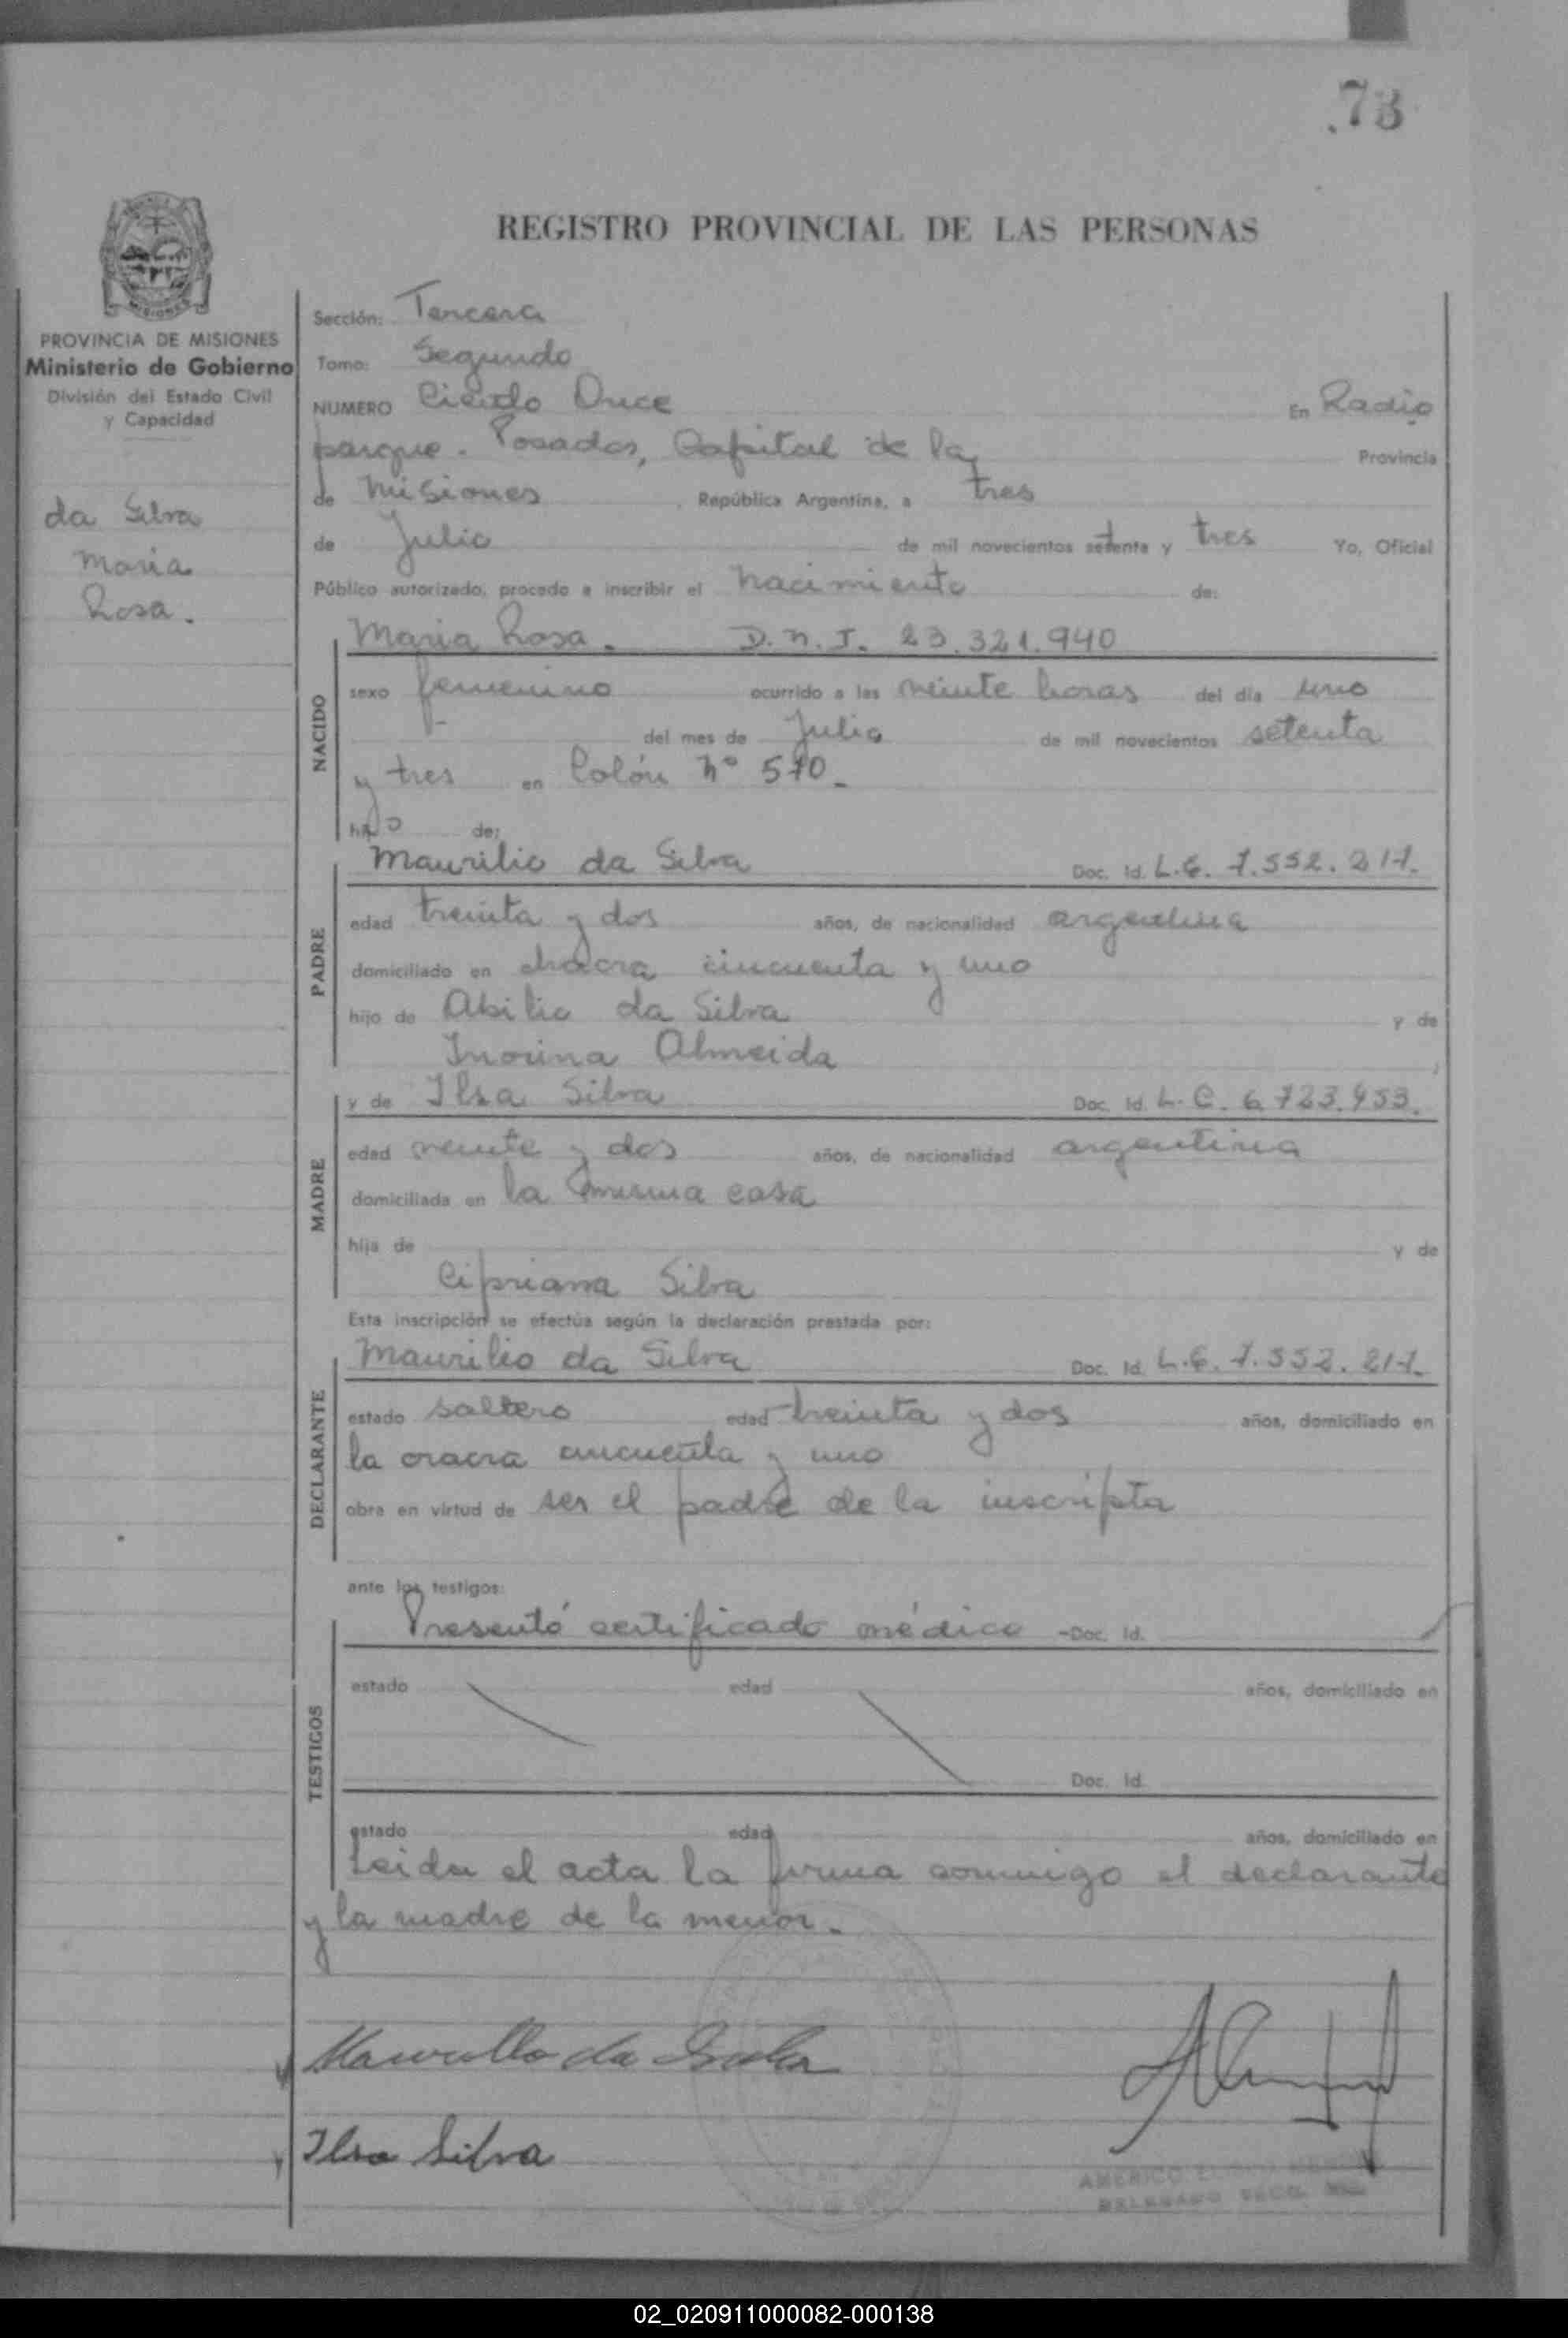 .73
REGISTRO PROVINCIAL DE LAS PERSONAS
MISIONES
PROVINCIA DE MISIONES
Ministerio de Gobierno
División del Estado Civil
y Capacidad
da Silva
Maria
Rosa.
Sección: Tercera
Tomo: Segundo
NUMERO Ciento Once En Radio
parque. Posadas, Capital de la Provincia
de Misiones, República Argentina, a tres
de Julio de mil novecientos setenta y tres Yo, Oficial
Público autorizado, procedo a inscribir el nacimiento de:
NACIDO
Maria Rosa. D.N.I. 23.321.940
sexo femenino ocurrido a las veinte horas del día uno
del mes de Julio de mil novecientos setenta
y tres en Colón Nº 570.
de:
PADRE
Maurilio da Silva Doc. Id. L.E. 7.552.217.
edad treinta y dos años, de nacionalidad argentina
domiciliado en chacra cincuenta y uno
hijo de Abilio da Silva y de
Almeida
MADRE
y de Ilsa Silva Doc. Id. L.C. 6.723.453.
edad veinte y dos años, de nacionalidad argentina
domiciliada en la misma casa
hija de y de
Cipriana Silva
Esta inscripción se efectúa según la declaración prestada por:
DECLARANTE
Maurilio da Silva Doc. Id. L.E. 7.552.217.
estado soltero edad treinta y dos años, domiciliado en
la cracra cincuenta y uno
obra en virtud de ser el padre de la inscripta
ante los testigos:
TESTIGOS
Presentó certificado médico - Doc. Id.
estado edad años, domiciliado en
Doc. Id.
estado edad años, domiciliado en
Leida el acta la firma conmigo el declarante
y la madre de la menor.
da Silva
Ilsa Silva
AMERICO
DELEGADO
02_020911000082-000138